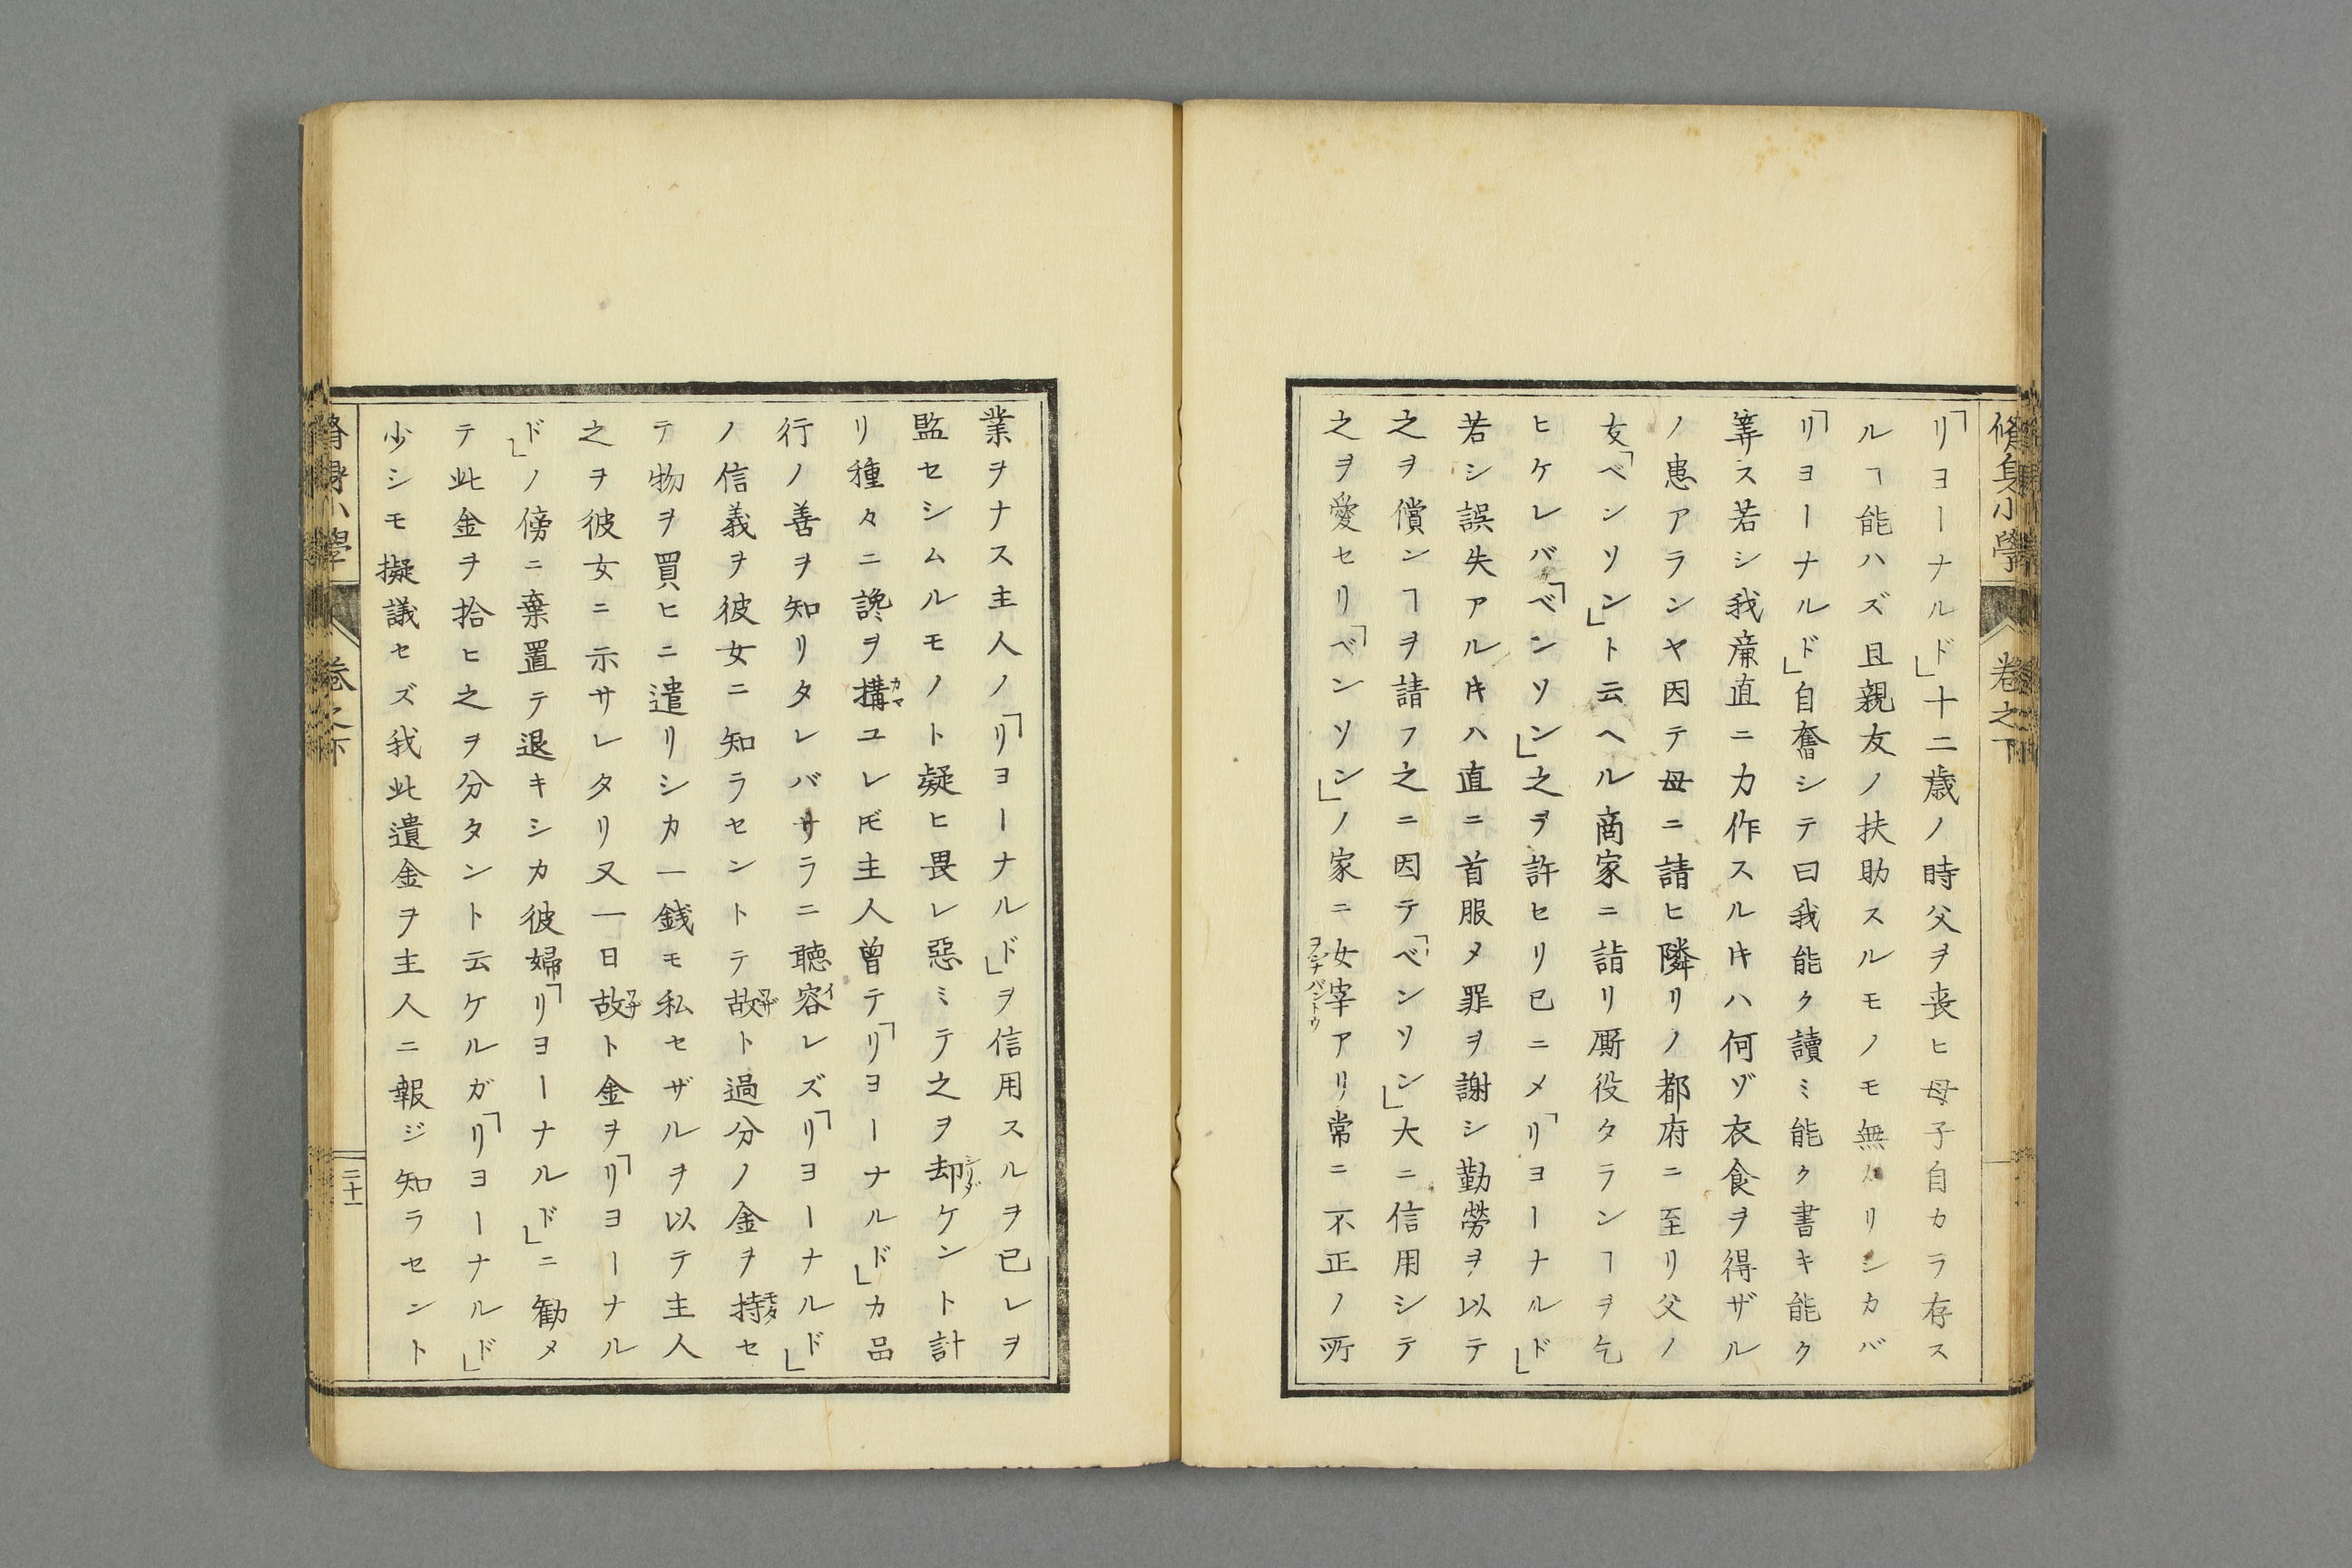 脩身小學 卷之下
「リヨーナルド」十二歳ノ時父ヲ喪ヒ母子自カラ存ス
ルヿ能ハズ且親友ノ扶助スルモノモ無カリシカバ
「リヨーナルド」自奮シテ曰我能ク讀ミ能ク書キ能ク
筭ス若シ我廉直ニ力作スルキハ何ゾ衣食ヲ得ザル
ノ患アランヤ因テ母ニ請ヒ隣リノ都府ニ至リ父ノ
友「ベンソン」ト云ヘル商家ニ詣リ厮役タランヿヲ乞
ヒケレバ「ベンソン」之ヲ許セリ已ニメ「リヨーナルド」
若シ誤失アルキハ直ニ首服メ罪ヲ謝シ勤勞ヲ以テ
之ヲ償ンヿヲ請フ之ニ因テ「ベンソン」大ニ信用シテ
之ヲ愛セリ「ベンソン」ノ家ニ女宰アリ常ニ不正ノ所
ヲンナバントウ
業ヲナス主人ノ「リヨーナルド」ヲ信用スルヲ已レヲ
監セシムルモノト疑ヒ畏レ惡ミテ之ヲ却ケント計
シリゾ
リ種々ニ讒ヲ構ユレ𪜈主人曾テ「リヨーナルド」カ品
カマ
行ノ善ヲ知リタレバサラニ聽容レズ「リヨーナルド」
イ
ノ信義ヲ彼女ニ知ラセントテ故ト過分ノ金ヲ持セ
ワザ モタ
テ物ヲ買ヒニ遣リシカ一銭モ私セザルヲ以テ主人
之ヲ彼女ニ示サレタリ又一日故ト金ヲ「リヨーナル
ワザ
ド」ノ傍ニ棄置テ退キシカ彼婦「リヨーナルド」ニ勧メ
テ此金ヲ拾ヒ之ヲ分タント云ケルガ「リヨーナルド」
少シモ擬議セズ我此遺金ヲ主人ニ報ジ知ラセント
脩身小學 卷之下 二十一